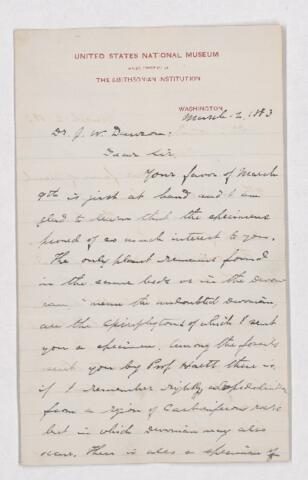 UNITED STATES NATIONAL MUSEUM
UNDER DIRECTION OF
THE SMITHSONIAN INSTITUTION
WASHINGTON
March 1883
Dr. J. W. Dawson;
Dear Sir,
Your favor of March
9th is just at hand and I am
glad to learn that the specimens
proved of so much interest to you.
The only plant remains found
in the same beds or in the
I mean the undoubted Devonian,
are the Spirophytons of which I sent
you a specimen. Among the fossils
sent you by Prof Hartt there is,
if I remember rightly a Lepidodendron
from a region of Carboniferous rocks
but in which Devonian may also
occur. There is also a specimen of